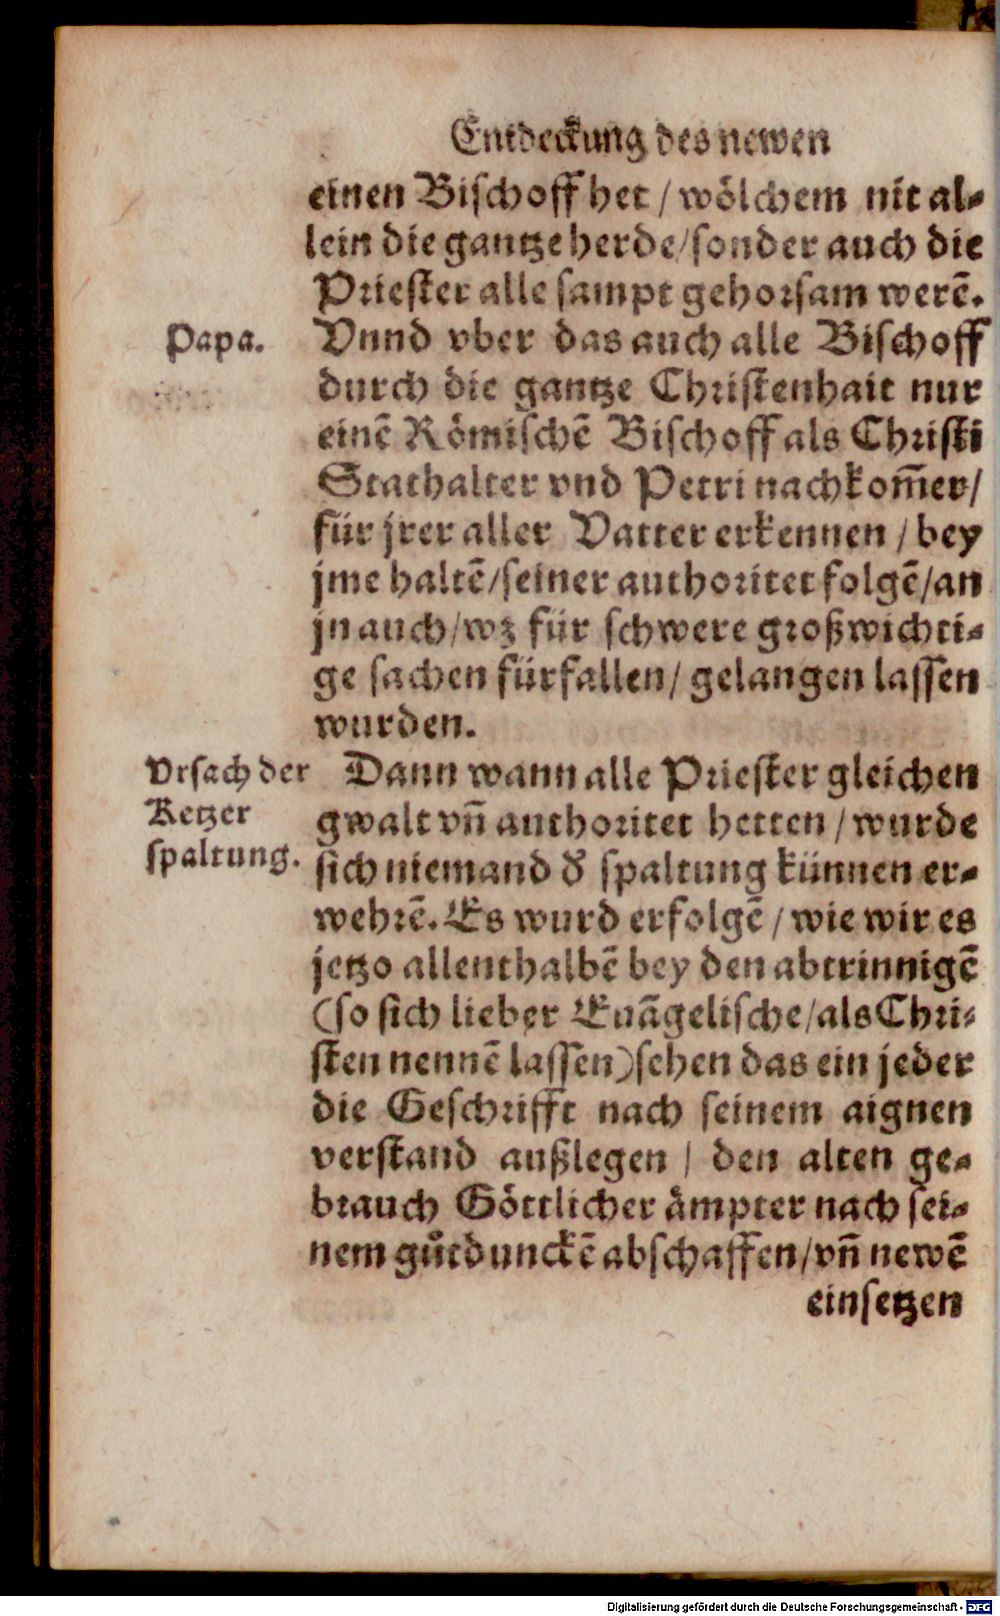 Entdeckung des newen
einen Bischoff het / wölchem nit al-
lein die gantze herde / sonder auch die
Priester alle sampt gehorsam werē.
Papa.
Vnnd vber das auch alle Bischoff
durch die gantze Christenhait nur
einē Römischē Bischoff als Christi
Stathalter vnd Petri nachkom̄er /
für jrer aller Vatter erkennen / bey
jme haltē / seiner authoritet folgē / an
jn auch / wz für schwere großwichti-
ge sachen fürfallen / gelangen lassen
wurden.
Vrsach der
Ketzer
spaltung.
Dann wann alle Priester gleichen
gwalt vn̄ authoritet hetten / wurde
sich niemand d̕ spaltung künnen er-
wehrē. Es wurd erfolgē / wie wir es
jetzo allenthalbē bey den abtrinnigē
(so sich lieber Euāgelische / als Chri-
sten nennē lassen) sehen das ein jeder
die Geschrifft nach seinem aignen
verstand außlegen / den alten ge-
brauch Göttlicher ämpter nach sei-
nem gůtdunckē abschaffen / vn̄ newē
einsetzen
Digitalisierung gefördert durch die Deutsche Forschungsgemeinschaft - DFG